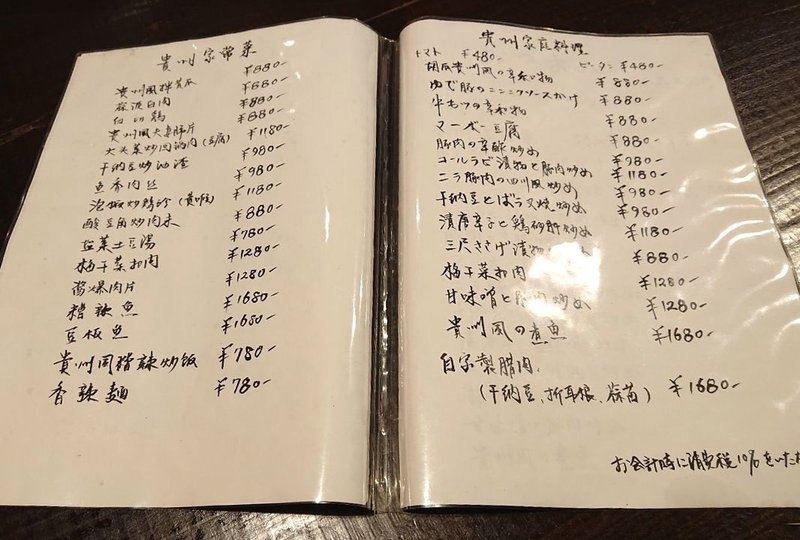 貴州家常菜
貴州風拌黄瓜 ¥880-
蒜泥白肉 ¥880-
白切鶏 ¥880-
貴州風夫妻肺片 ¥880-
大头菜炒肉 ¥1180-
干納豆炒油渣 ¥980-
魚香肉丝 ¥980-
泡椒炒鶏珍 ¥1180-
酸豆角炒肉末 ¥880-
塩菜土豆湯 ¥780-
梅干菜扣肉 ¥1280-
酱爆肉片 ¥1280-
糟辣魚 ¥1680-
豆板魚 ¥1680-
貴州風糟辣炒饭 ¥780-
香辣麺 ¥780-
貴州家庭料理
トマト ¥480- ピータン ¥480-
胡瓜貴州風の辛和え物 ¥880-
ゆで豚のニンニクソースかけ ¥880-
牛もつの辛和物 ¥880-
マーボー豆腐 ¥880-
豚肉の辛酸炒め ¥980-
コールラビ漬物と豚肉炒め ¥1180-
ニラ豚肉の四川風炒め ¥980-
干納豆とばら叉焼炒め ¥980-
漬唐辛子と鶏砂肝炒め ¥1180-
三尺ささげ漬物 ¥880-
梅干菜扣肉 ¥1280-
甘味噌と 肉炒め ¥1280-
貴州風の煮魚 ¥1680-
自家製腊肉
(干納豆、折耳根、蒜苗) ¥1680-
お会計時に消費税10%をいた